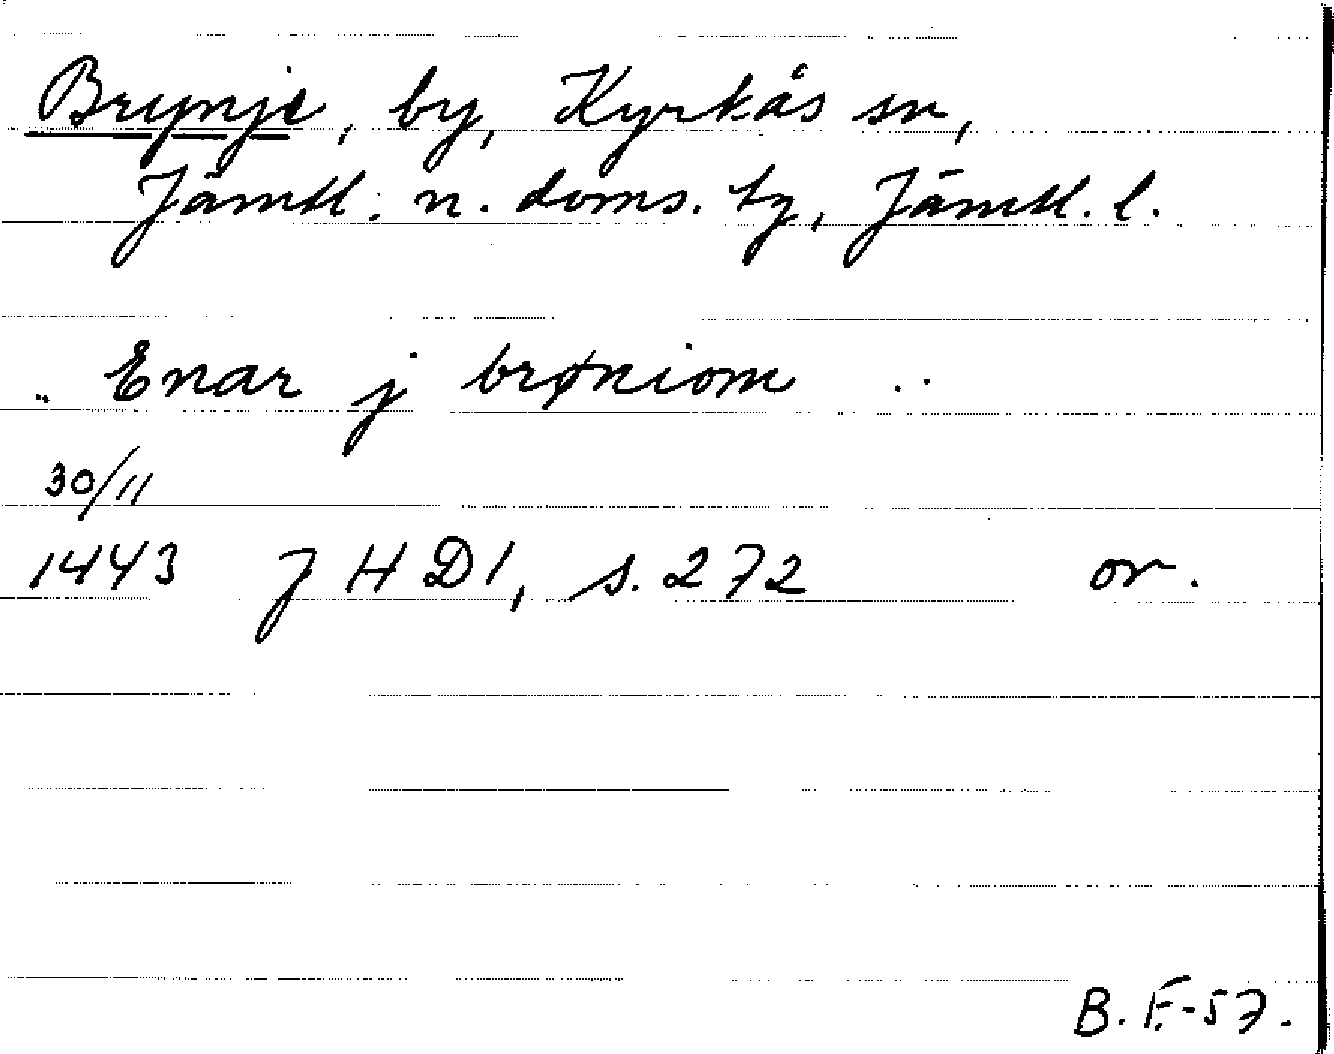 Brynje, by, Kyrkås sn,
Jämtl. n. doms. tg, Jämtl. l.
.. Enar j brøniom ..
30/11
1443 JHD1, s. 272 or.
B. F.-57.